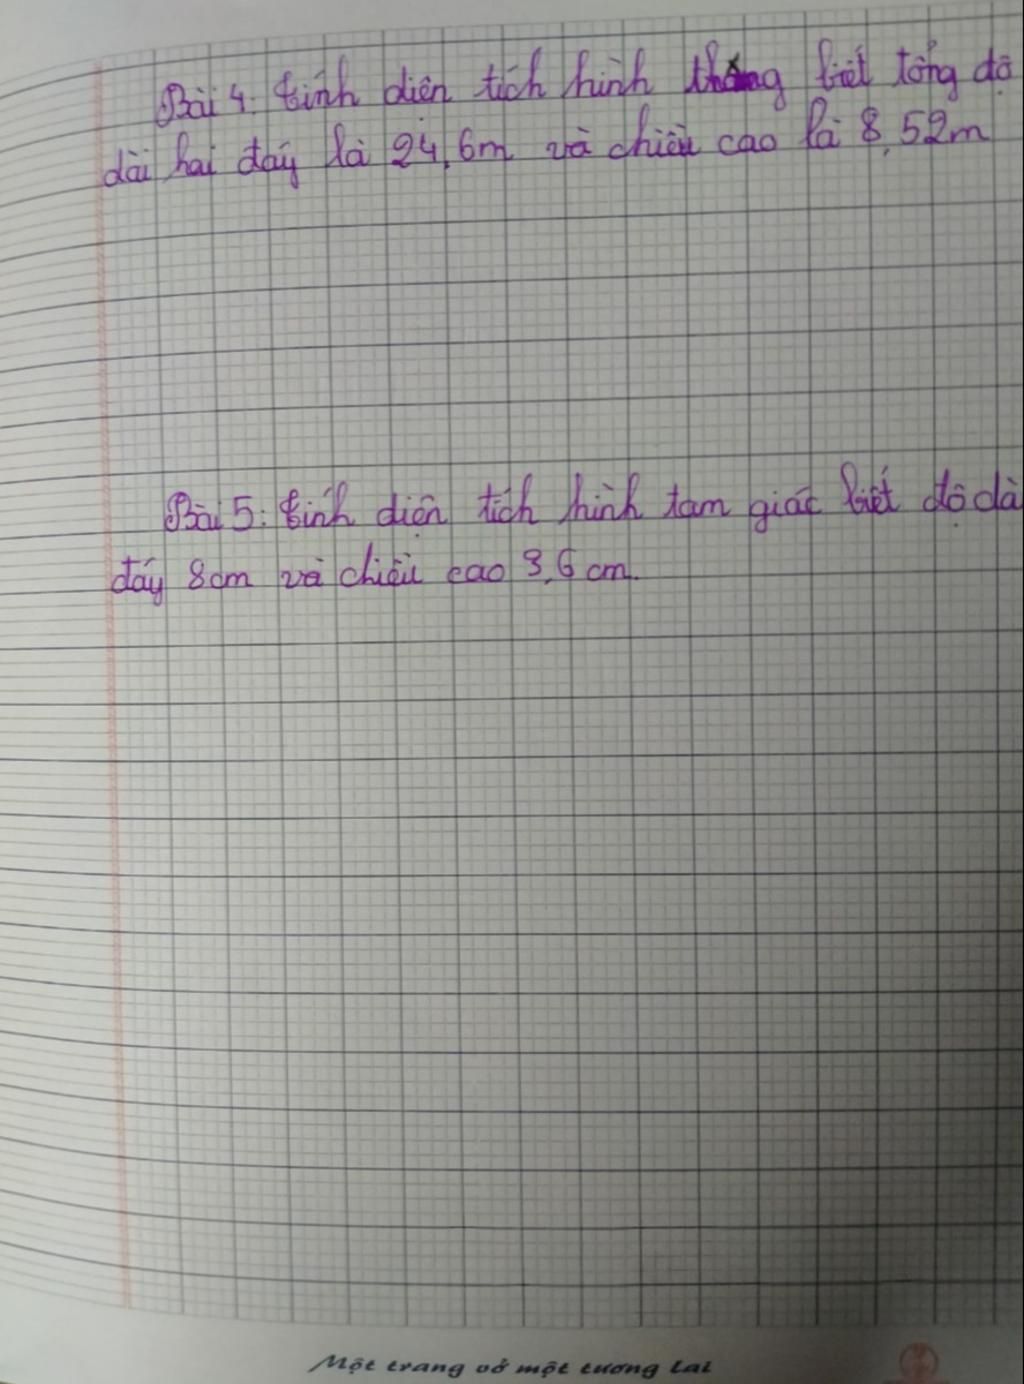 Bài 4: Tính diện tích hình thang biết tổng độ
dài hai đáy là 24,6m và chiều cao là 8,52m
Bài 5: Tính diện tích hình tam giác biết độ dà
đáy 8cm và chiều cao 3,6 cm.
Một trang vở một tương lai